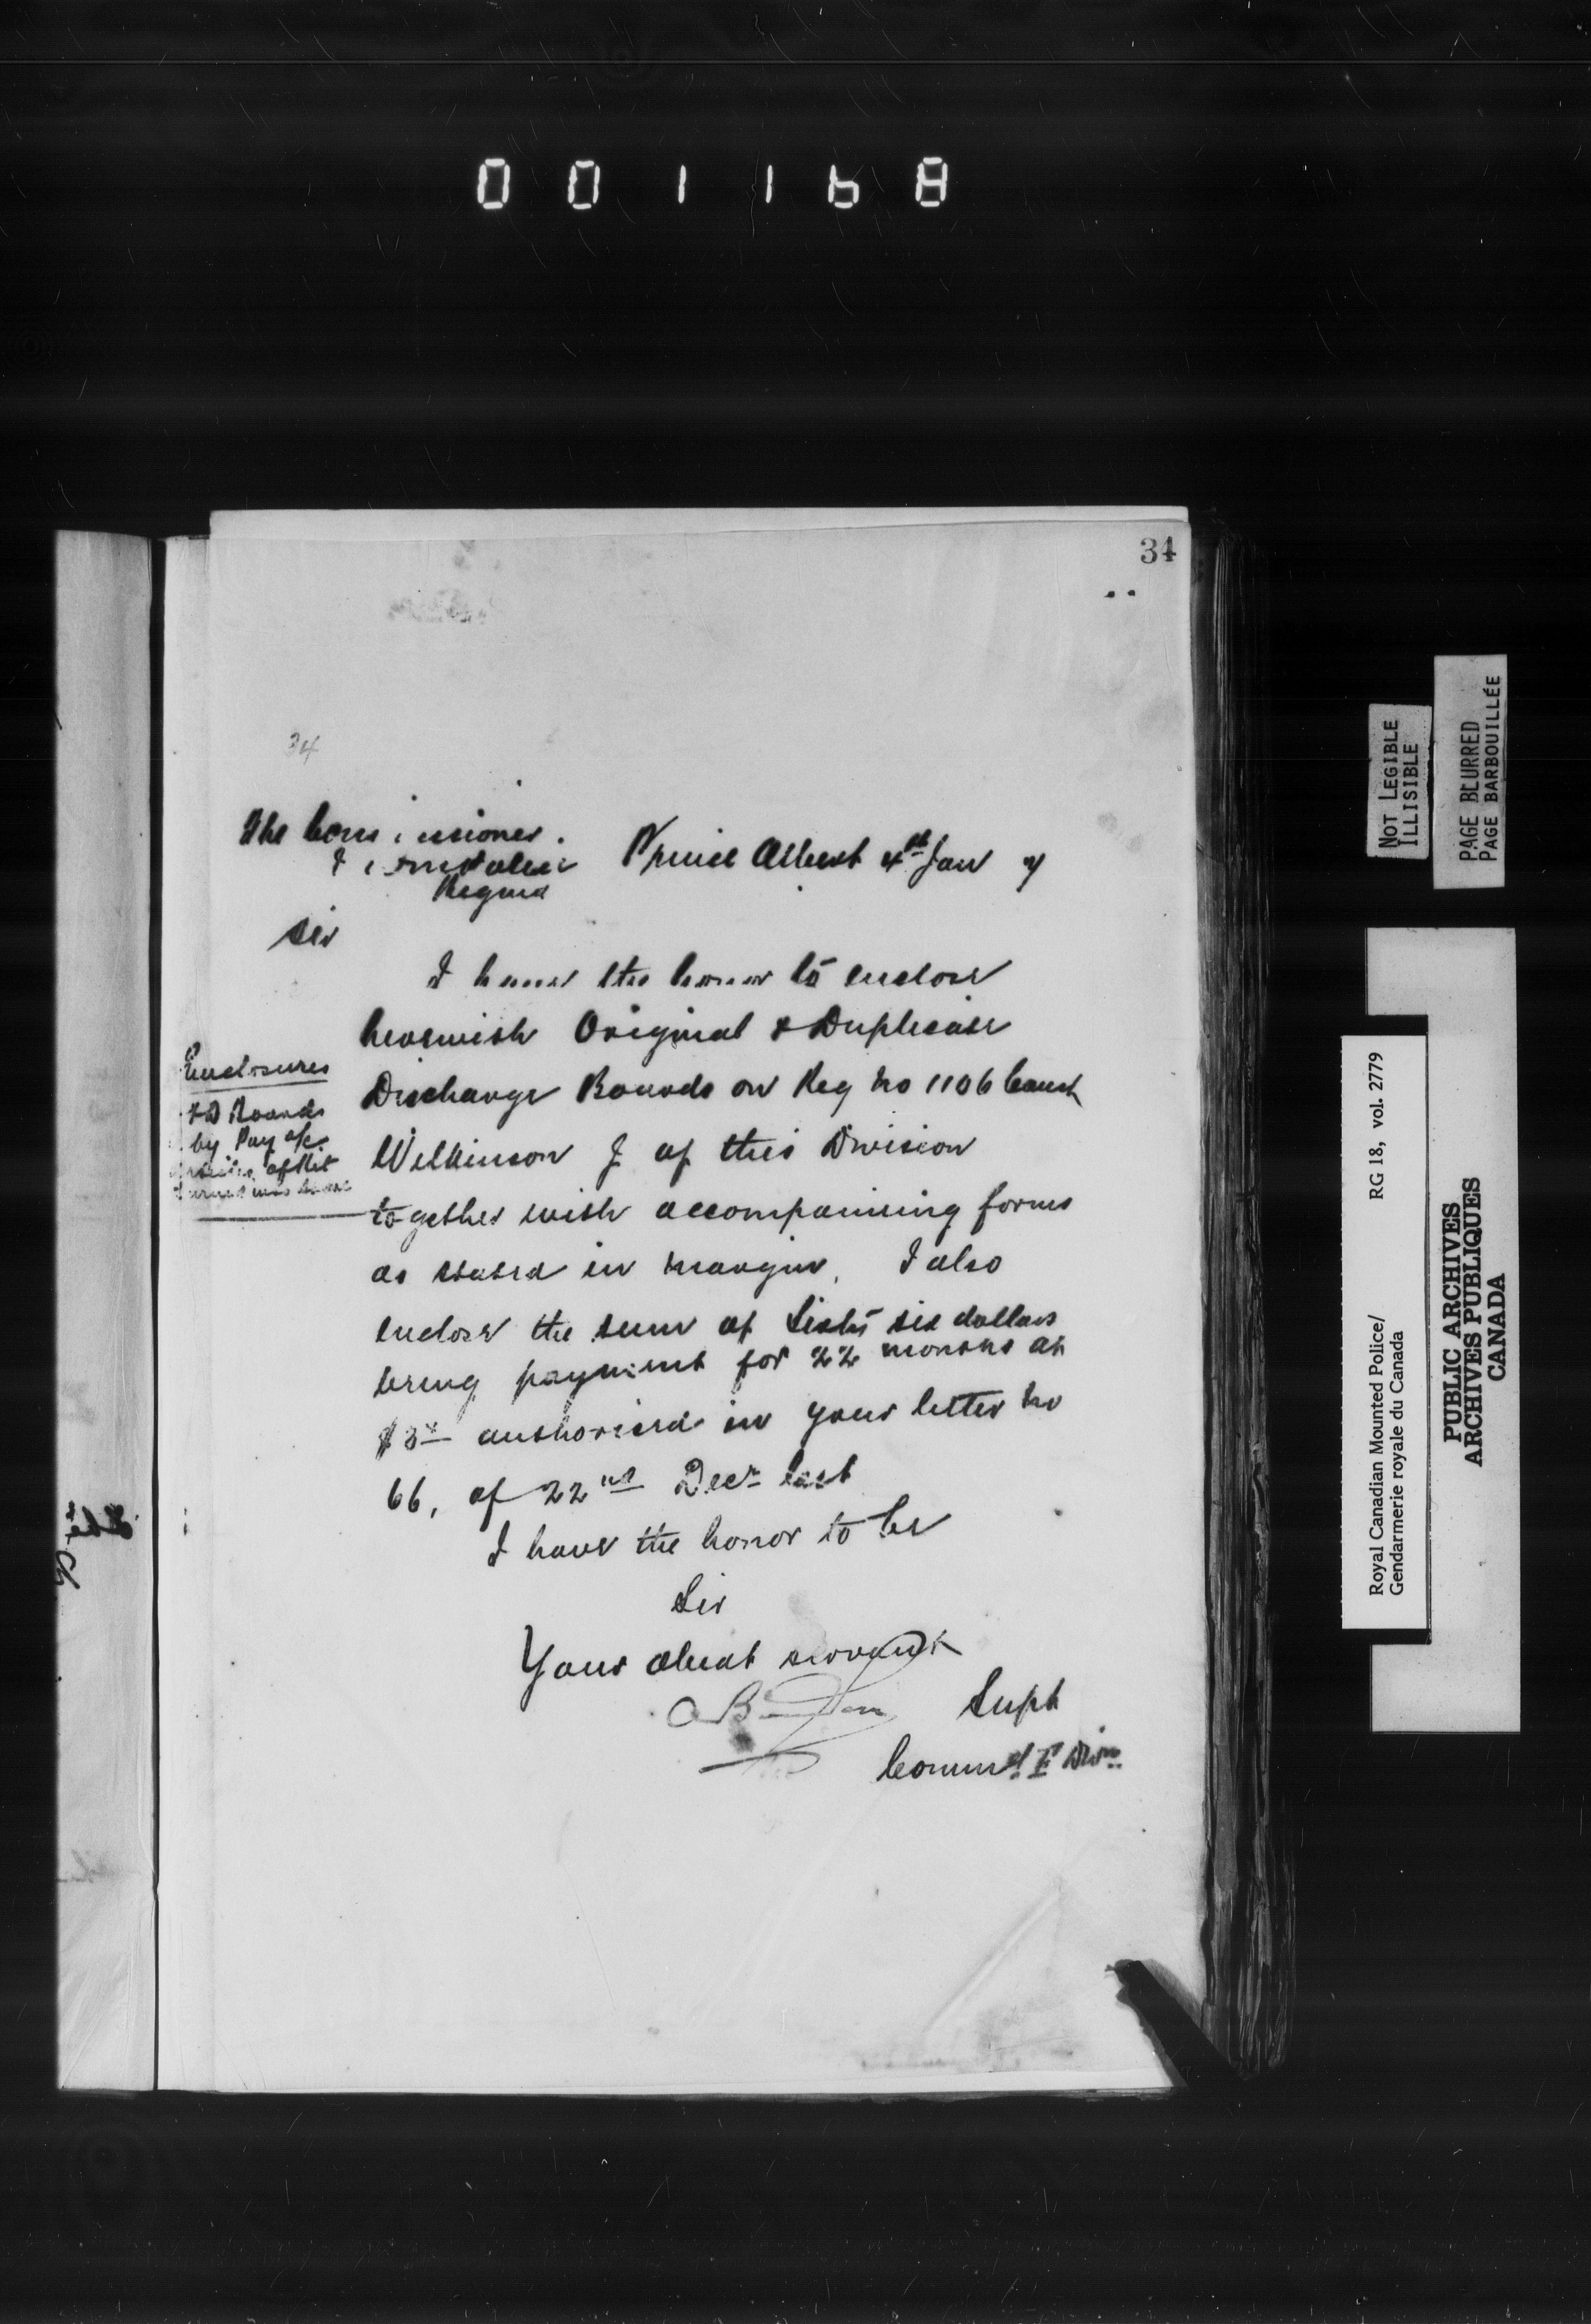 001168
34
34
The Commissioner.
Regina
Prince Albert 4th Jan 7
Sir
I have the honor to enclose
herewith Original & Duplicate
Discharge Boards on Reg No 1106 Const
Wilkinson J of this Division
together with accompanining forms
as stated in margin. I also
enclose the sum of Sixty six dollars
being payment for 22 months at
$3 authorised in your letter No
66, of 22nd Decr last
I have the honor to be
Sir
Your obedt servant
Supt
Commd F Divn
Enclosures
Boards
by Pay a/c
of Kit
NOT LEGIBLE
ILLISIBLE
PAGE BLURRED
PAGE BARBOUILLÉE
Royal Canadian Mounted Police/ RG 18, vol. 2779
Gendarmerie royale du Canada
PUBLIC ARCHIVES
ARCHIVES PUBLIQUES
CANADA